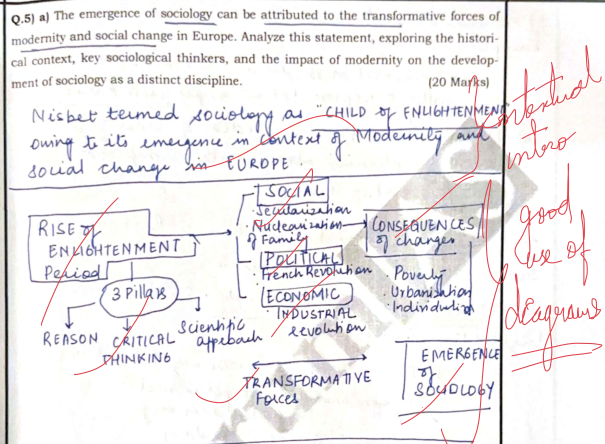 Q.5) a) The emergence of sociology can be attributed to the transformative forces of
modernity and social change in Europe. Analyze this statement, exploring the histori-
cal context, key sociological thinkers, and the impact of modernity on the develop-
ment of sociology as a distinct discipline. (20 Marks)
Nisbet termed sociology as "CHILD of ENLIGHTENMENT
owing to its emergence in context of Modernity and
social change in EUROPE.
contextual
intro
good
use of
diagrams
RISE of
ENLIGHTENMENT
Period
3 Pillars
REASON
CRITICAL
THINKING
Scientific
approach
SOCIAL
· Secularisation
· Nuclearisation
of Family
POLITICAL
· French Revolution
ECONOMIC
INDUSTRIAL
revolution
CONSEQUENCES
of changes
· Poverty
· Urbanisation
TRANSFORMATIVE
Forces
EMERGENCE
of
SOCIOLOGY